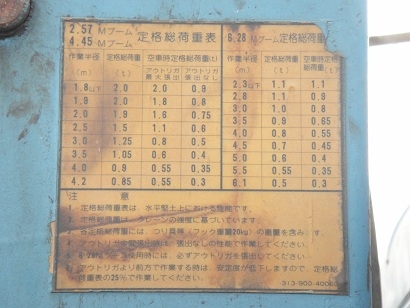 2.57 Mブーム
4.45 Mブーム
定格総荷重表
作業半径(m) 定格総荷重(t) 空車時定格総荷重(t)
アウトリガ最大張出 アウトリガ張出なし
1.8以下 2.0 2.0 0.9
1.9 2.0 1.8 0.8
2.0 1.9 1.6 0.75
2.5 1.5 1.1 0.6
3.0 1.25 0.8 0.5
3.5 1.05 0.6 0.4
4.0 0.9 0.55 0.35
4.2 0.85 0.55 0.3
6.28 Mブーム定格総荷重
作業半径(m) 定格総荷重(t) 空車時定格
2.3以下 1.1 1.1
2.8 1.1 0.9
3.0 1.0 0.8
3.5 0.9 0.65
4.0 0.8 0.55
4.5 0.7 0.5
5.0 0.6 0.4
5.5 0.55 0.35
6.1 0.5 0.3
注意
定格総荷重表は、水平堅土上における性能です。
定格総荷重は クレーンの強度に基づいています。
定格総荷重とは、つり具等(フック重量20kg)の重量を含みます。
アウトリガ中間張出しは張出なしの性能で作業してください。
ブーム作業時には必ずアウトリガを使用してください。
アウトリガより前方で作業する時は 安定度が低下しますので、定格総
荷重表の25%で作業してください。
313-900-400